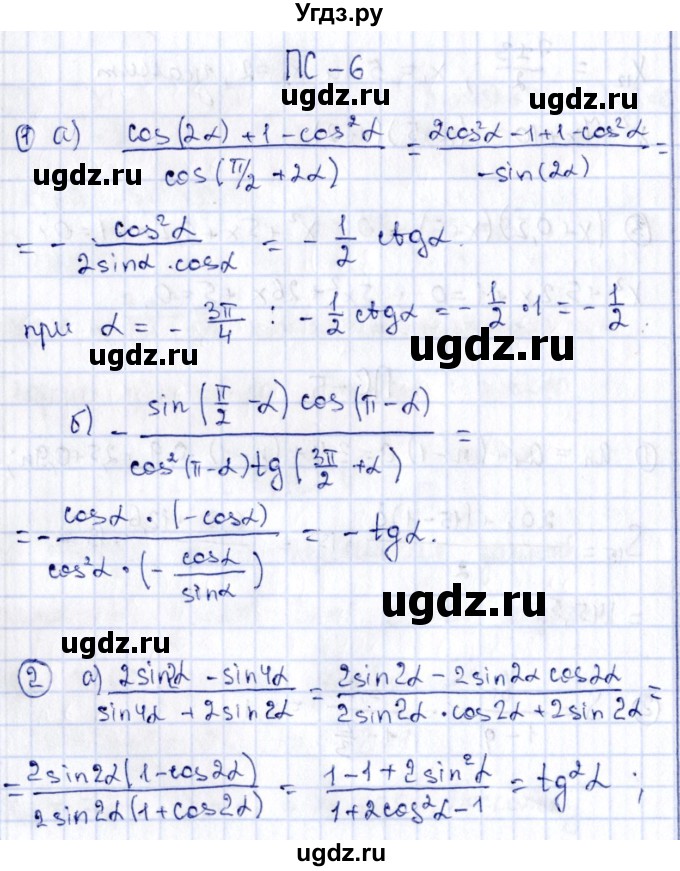 Угдз.ру
ПС – 6
ugdz.ru
① а) (cos(2α) + 1 – cos²α)/(cos(π/2 + 2α)) = (2cos²α – 1 + 1 – cos²α)/(–sin(2α)) =
ugdz.ru ugdz.ru
= – (cos²α)/(2sinα · cosα) = – 1/2 ctgα.
при α = – 3π/4 : – 1/2 ctgα = – 1/2 · 1 = – 1/2.
ugdz.ru
б) – (sin(π/2 – α) cos(π – α))/(cos²(π – α) tg(3π/2 + α)) =
= – (cosα · (–cosα))/(cos²α · (– cosα/sinα)) = – tgα.
ugdz.ru
ugdz.ru
② а) (2sin2α – sin4α)/(sin4α + 2sin2α) = (2sin2α – 2sin2α cos2α)/(2sin2α · cos2α + 2sin2α) =
= (2sin2α(1 – cos2α))/(2sin2α(1 + cos2α)) = (1 – 1 + 2sin²α)/(1 + 2cos²α – 1) = tg²α ;
ugdz.ru